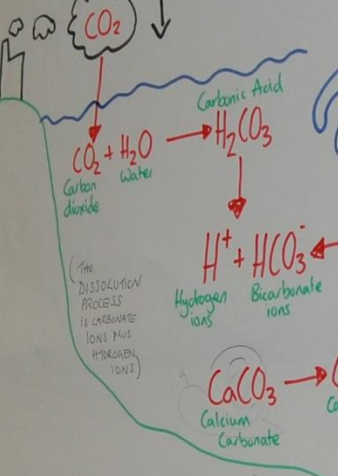 CO₂
Carbonic Acid
CO₂ + H₂O → H₂CO₃
Carbon dioxide
Water
H⁺ + HCO₃⁻
Hydrogen ions
Bicarbonate ions
(THE
DISSOLUTION
PROCESS
IS CARBONATE
IONS PLUS
HYDROGEN
IONS)
CaCO₃ →
Calcium
Carbonate